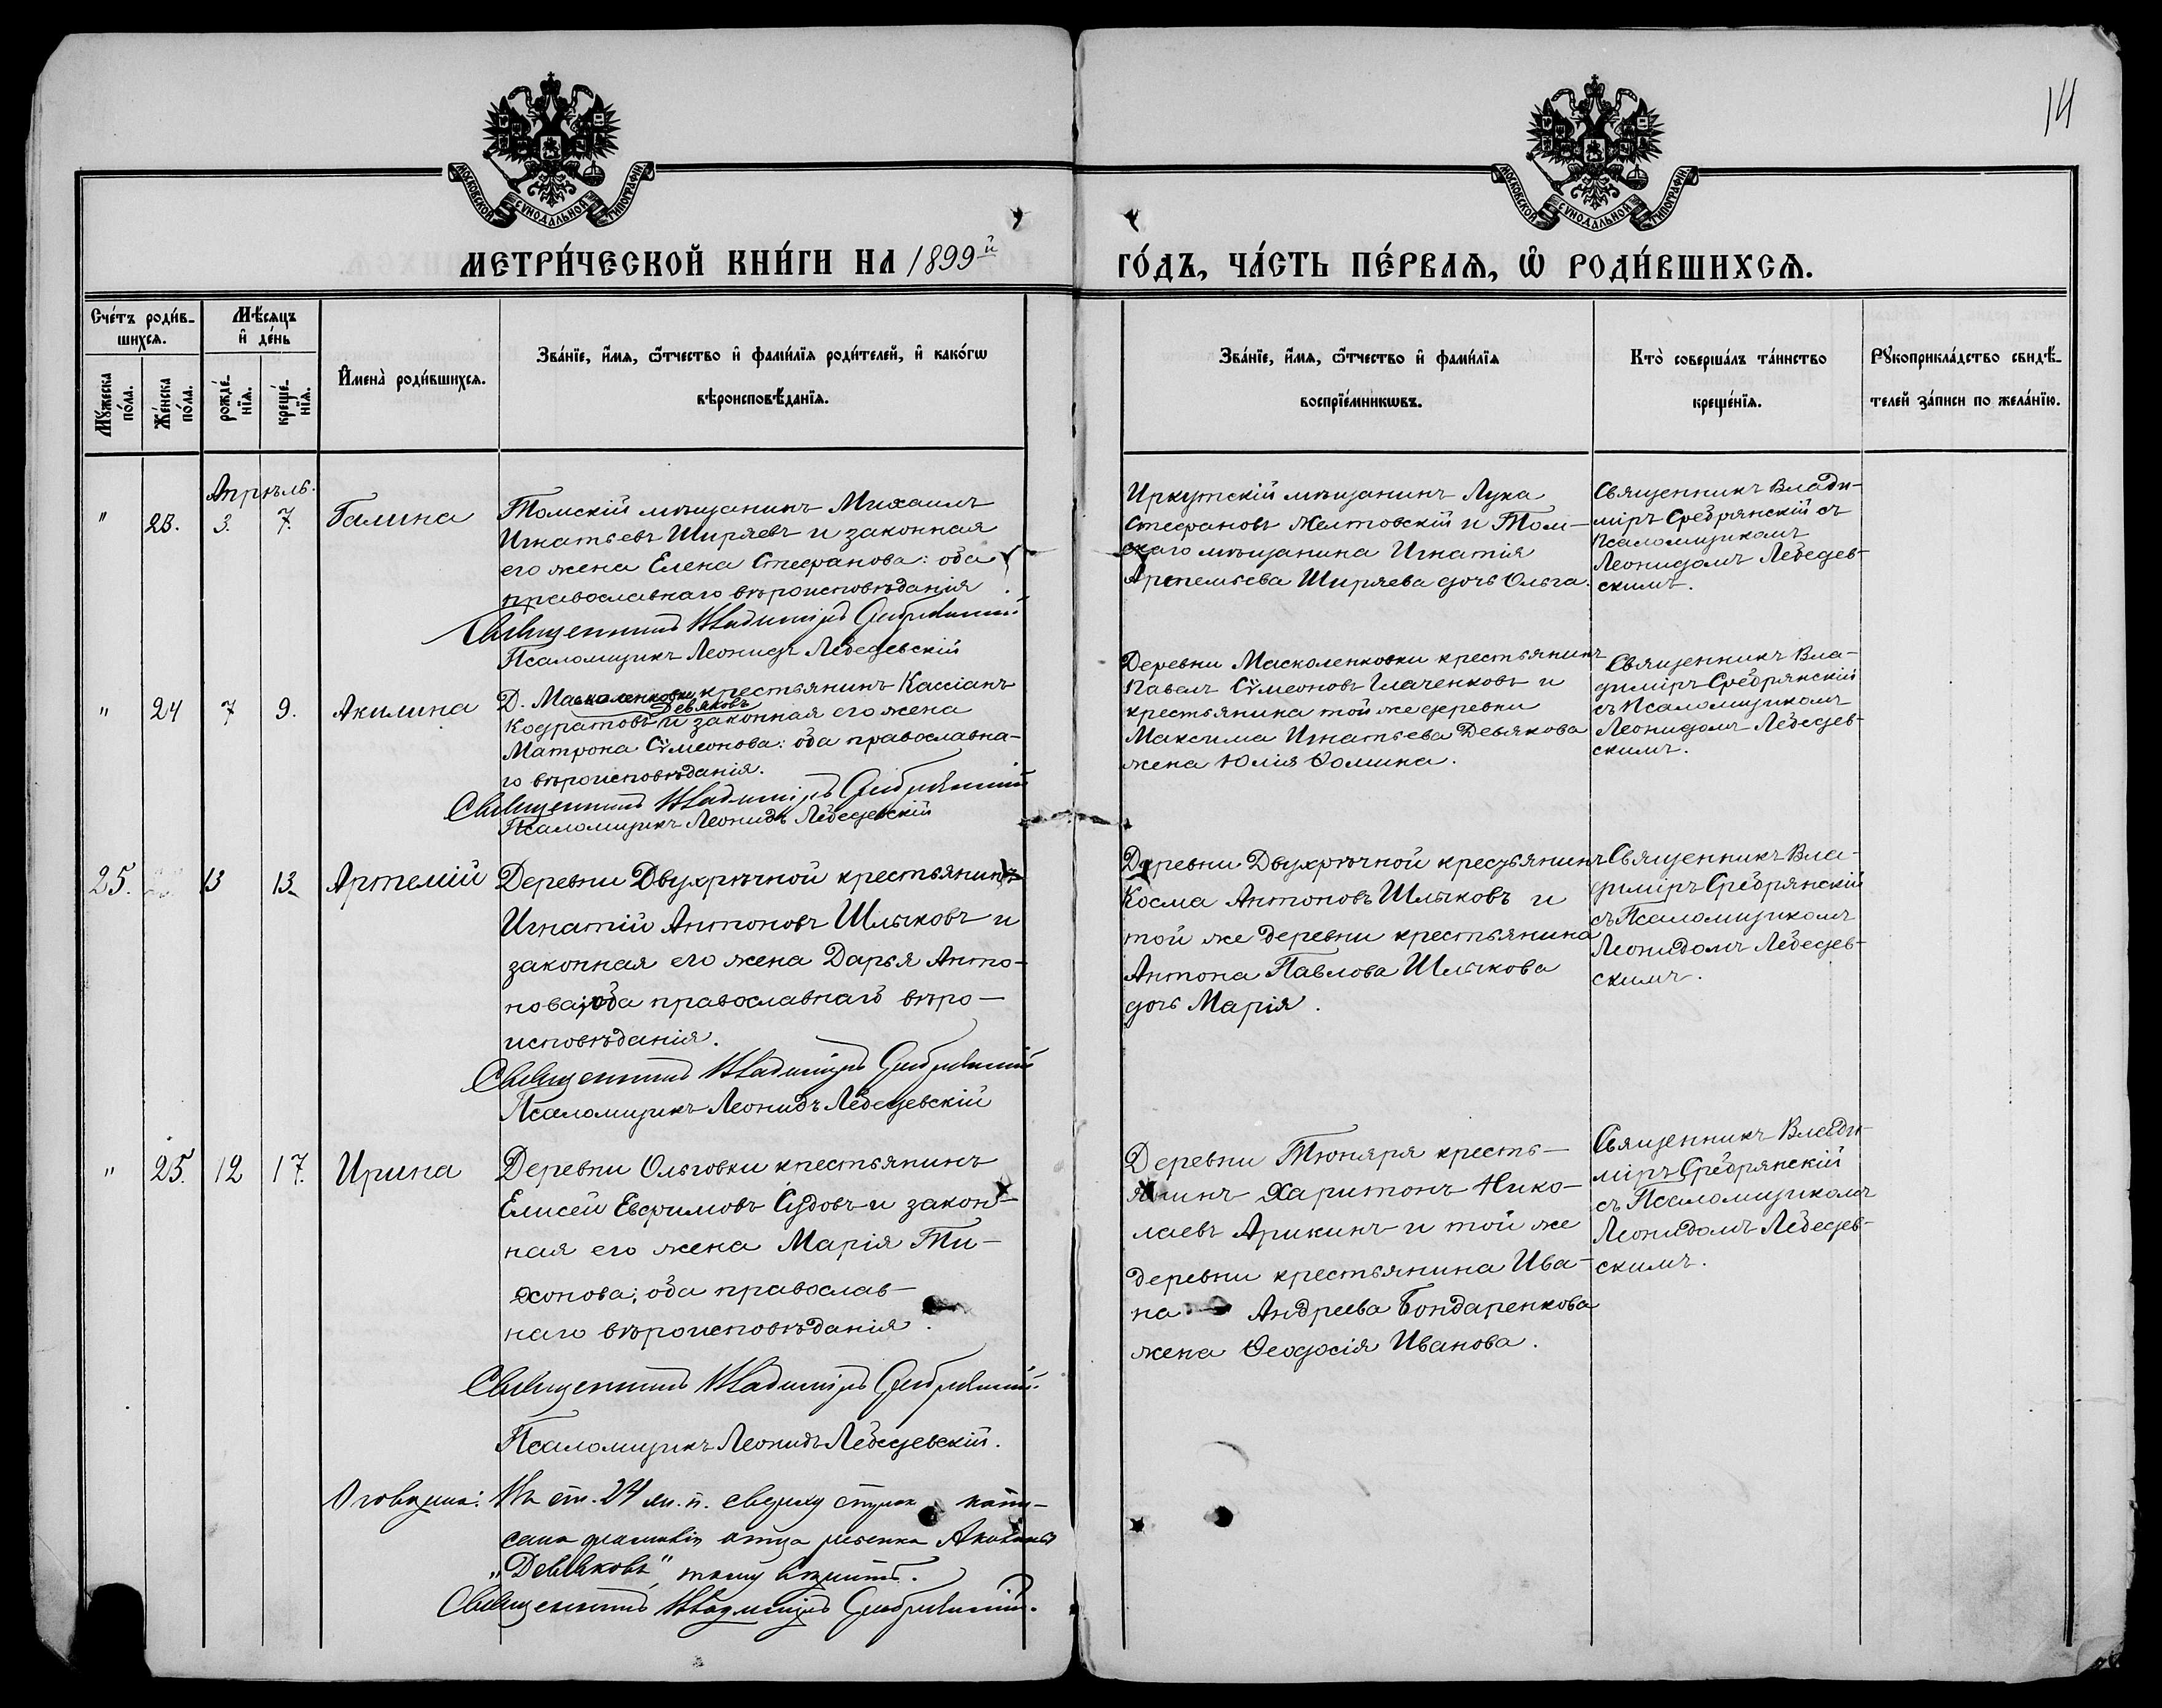 14
МОСКОВСКОЙ СУНОДАЛЬНОЙ ТИПОГРАФІИ
МОСКОВСКОЙ СУНОДАЛЬНОЙ ТИПОГРАФІИ
МЕТРИ́ЧЕСКОЙ КНИ́ГИ НА 1899й
ГО́ДЪ, ЧА́СТЬ ПЕ́РВАѦ, Ѡ҆ РОДИ́ВШИХСѦ.
Сче́тъ роди́в-
шихсѧ.
Мꙋ́жеска
по́ла.
Же́нска
по́ла.
Мѣ́сѧцъ
и҆ де́нь
рожде́-
нїѧ.
креще́-
нїѧ.
И҆мена̀ роди́вшихсѧ.
Зва́нїе, и҆́мѧ, ѻ҆́тчество и҆ фами́лїѧ роди́телей, и҆ како́гѡ
вѣроисповѣ́данїѧ.
Зва́нїе, и҆́мѧ, ѻ҆́тчество и҆ фами́лїѧ
воспрїе́мникѡвъ.
Кто̀ соверша́лъ та́инство
креще́нїѧ.
Рꙋкоприкла́дство свидѣ́-
телей за́писи по жела́нїю.
Апрѣль.
" 23. 3. 7. Галина
Томскій мѣщанинъ Михаилъ
Игнатьевъ Ширяевъ и законная
его жена Елена Стефанова: оба
православнаго вѣроисповѣданія
Священникъ Владиміръ Сребрянскій
Псаломщикъ Леонидъ Лебедевскій
Иркутскій мѣщанинъ Лука
Стефановъ Желтовскій и Том-
скаго мѣщанина Игнатія
Артемьева Ширяева дочь Ольга.
Священникъ Влади-
міръ Сребрянскій съ
Псаломщикомъ
Леонидомъ Лебедев-
скимъ.
" 24 7 9. Акилина
Д. Масколенковки крестьянинъ Кассіанъ
Девяковъ
Кодратовъ и законная его жена
Матрона Сѵмеонова: оба православна-
го вѣроисповѣданія.
Священникъ Владиміръ Сребрянскій
Псаломщикъ Леонидъ Лебедевскій
Деревни Масколенковки крестьянинъ
Павелъ Сѵмеоновъ Глаченковъ и
крестьянина той же деревни
Максима Игнатьева Девякова
жена Юлія Ѳомина.
Священникъ Вла-
диміръ Сребрянскій
съ Псаломщикомъ
Леонидомъ Лебедев-
скимъ.
25. 13 13. Артемій
Деревни Двухрѣчной крестьянинъ
Игнатій Антоновъ Шлыковъ и
законная его жена Дарья Анто-
нова; оба православнаго вѣро-
исповѣданія.
Священникъ Владиміръ Сребрянскій
Псаломщикъ Леонидъ Лебедевскій
Деревни Двухрѣчной крестьянинъ
Косма Антоновъ Шлыковъ и
той же деревни крестьянина
Антона Павлова Шлыкова
дочь Марія.
Священникъ Вла-
диміръ Сребрянскій
съ Псаломщикомъ
Леонидомъ Лебедев-
скимъ.
" 25. 12 17. Ирина
Деревни Ольговки крестьянинъ
Елисей Евфимовъ Судовъ и закон-
ная его жена Марія Ти-
хонова; оба православ-
наго вѣроисповѣданія.
Священникъ Владиміръ Сребрянскій.
Псаломщикъ Леонидъ Лебедевскій.
Деревни Тюняря кресть-
янинъ Харитонъ Нико-
лаевъ Арикинъ и той же
деревни крестьянина Ива-
на Андреева Бондаренкова
жена Ѳеодосія Иванова.
Священникъ Влади-
міръ Сребрянскій
съ Псаломщикомъ
Леонидомъ Лебедев-
скимъ.
Оговорка: На ст. 24 ж. п. сверху строк напи-
сана фамилія отца ребенка Акилины
„Девяковъ", тому вѣрить.
Священникъ Владиміръ Сребрянскій.